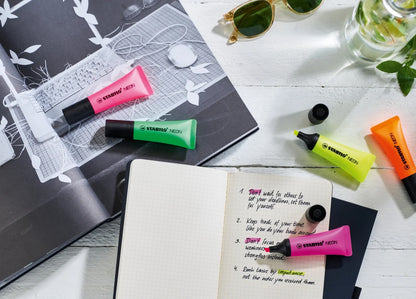 STABILO NEON
STABILO NEON
STABILO NEON
STABILO NEON
1. Don't wait for others to
set your deadlines, set them
for yourself.
2. Keep track of your time
like you do your bank account.
3. Don't focus
weaknesses
strengths instead.
4. Rank tasks by importance,
not the order you received them.
STABILO NEON